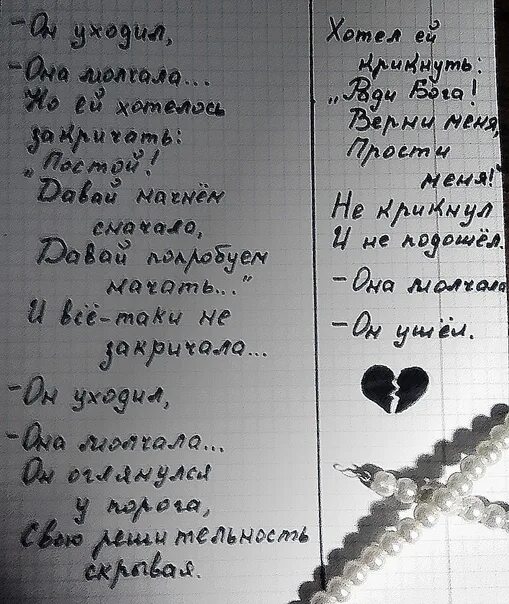 - Он уходил,
- Она молчала...
Но ей хотелось
закричать:
„Постой!
Давай начнём
сначала,
Давай попробуем
начать..."
И всё-таки не
закричала...
- Он уходил,
- Она молчала...
Он оглянулся
у порога,
Свою решительность
скрывая.
Хотел ей
крикнуть:
„Ради Бога!
Верни меня,
Прости
меня!"
Не крикнул
И не подошёл.
- Она молчала
- Он ушёл.